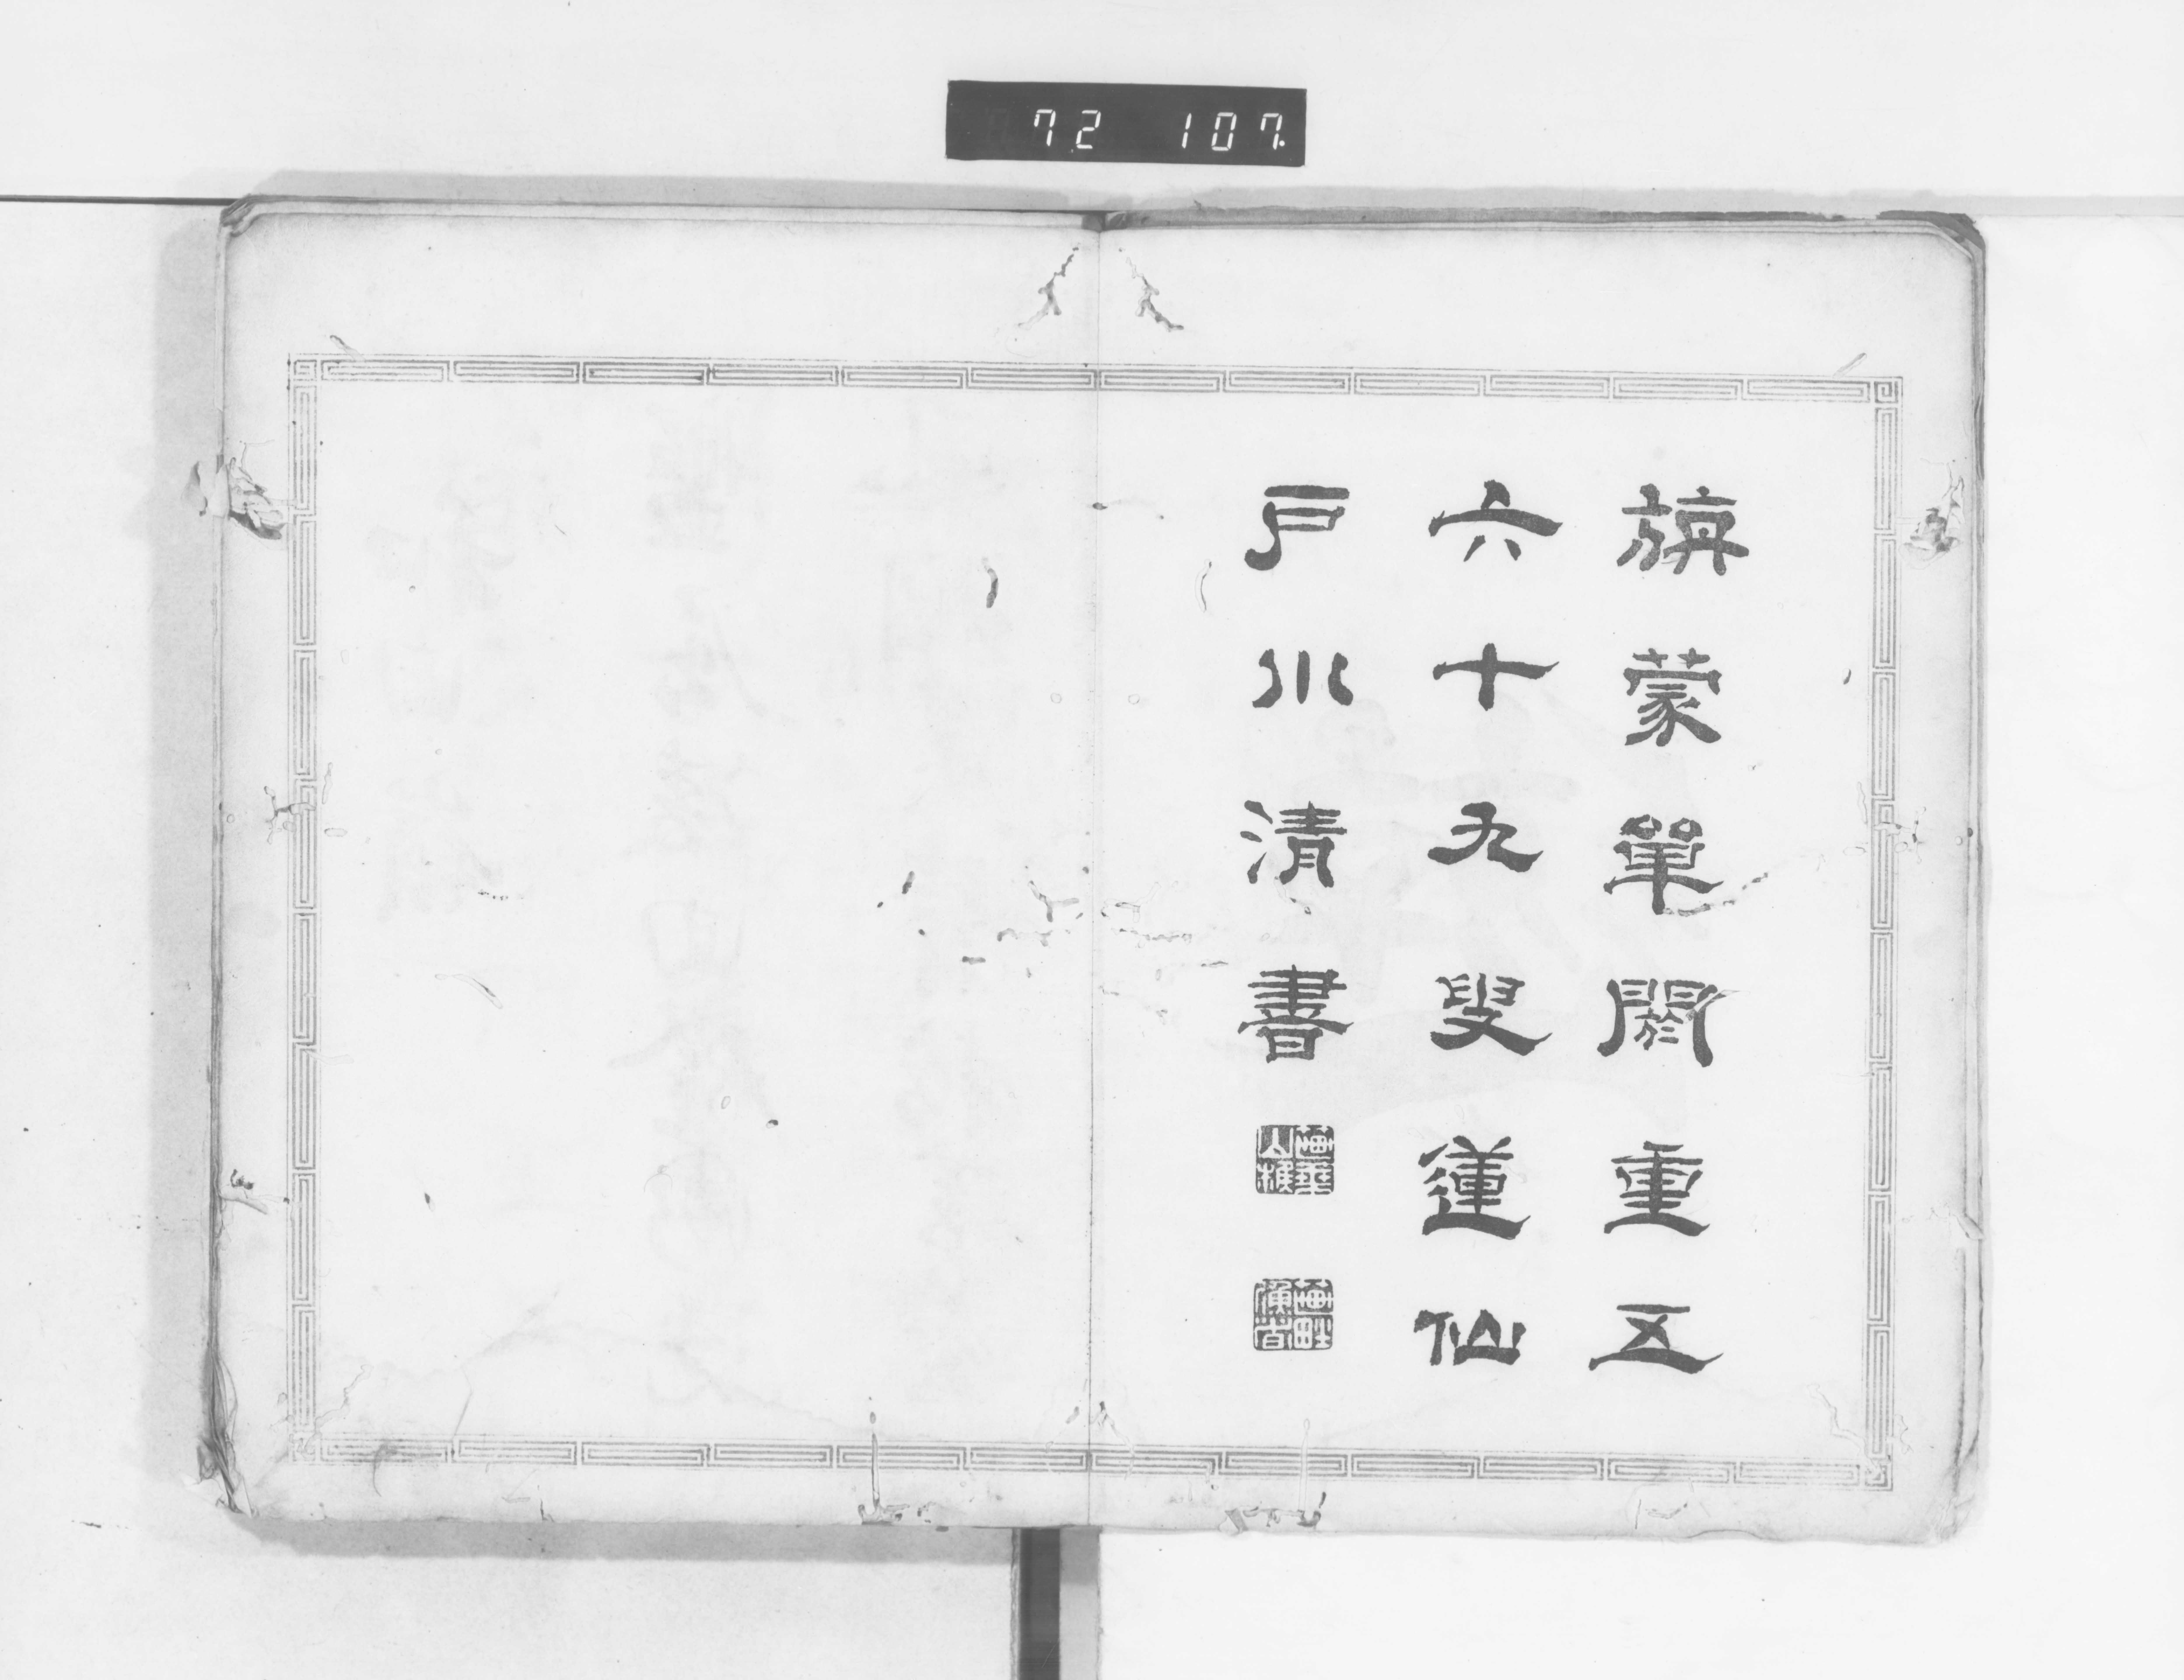 72 107.
旃蒙單閼重五
六十九叟蓮仙
戸川清書